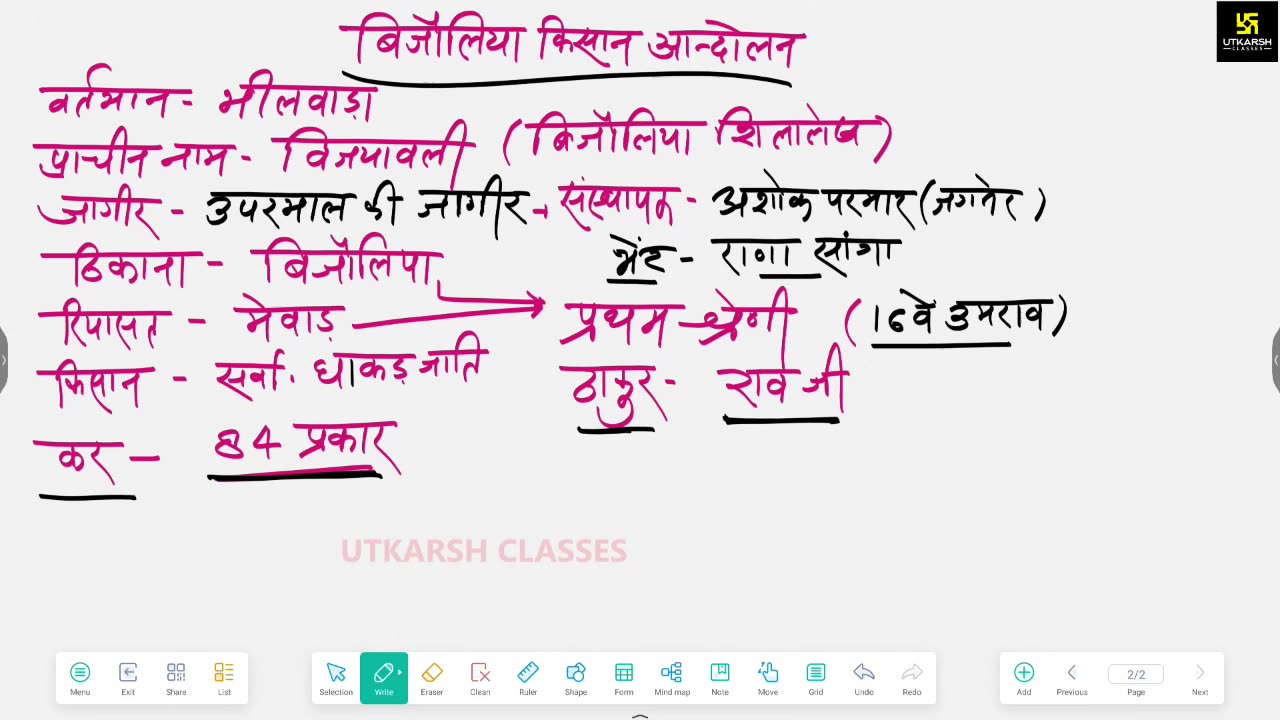 बिजौलिया किसान आन्दोलन
UTKARSH
CLASSES
वर्तमान - भीलवाड़ा
प्राचीन नाम - विजयावली (बिजौलिया शिलालेख)
जागीर - उपरमाल की जागीर → संस्थापक - अशोक परमार (जगनेर)
भेंट - राणा सांगा
ठिकाना - बिजौलिया
रियासत - मेवाड़ → प्रथम श्रेणी (16वे उमराव)
किसान - सर्वा. धाकड़ जाति
ठाकुर - राव जी
कर - 84 प्रकार
UTKARSH CLASSES
Menu Exit Share List Selection Write Eraser Clean Ruler Shape Form Mind map Note Move Grid Undo Redo Add Previous 2/2 Page Next